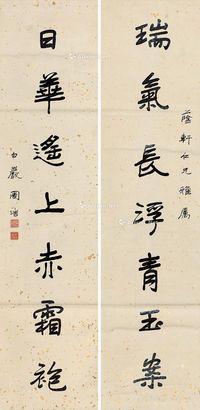 蔭軒仁兄雅屬
瑞氣長浮青玉案
日華遙上赤霜袍
白嚴